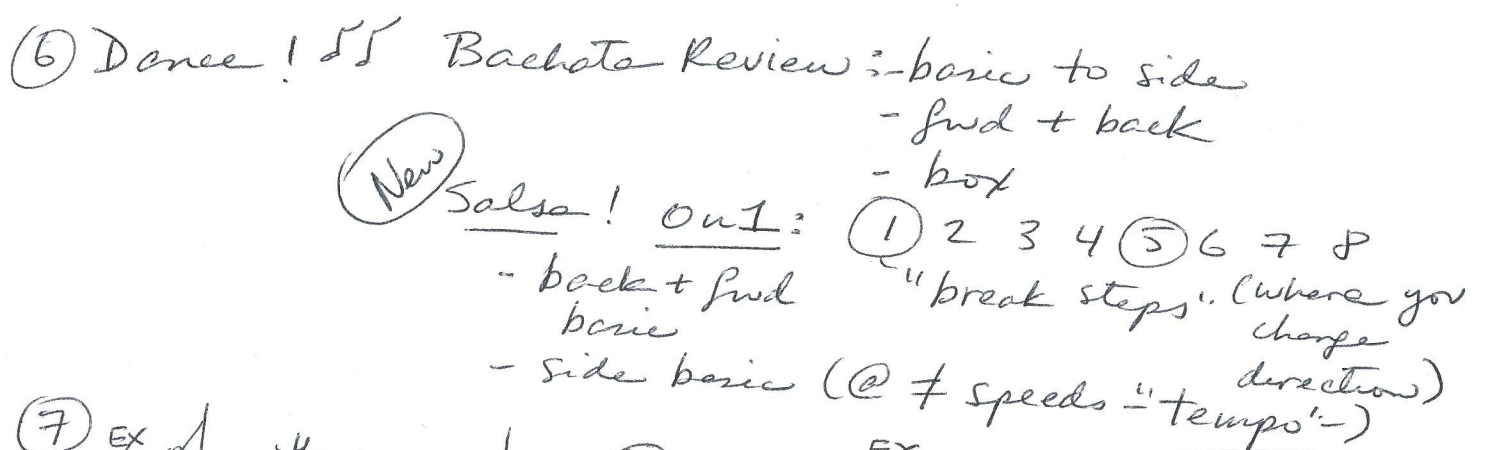 ⑥ Dance! ♫ Bachata Review :- basic to side
- fwd + back
- box
New Salsa! on1: ① 2 3 4 ⑤ 6 7 8
- back + fwd basic
"break steps". (where you change direction)
- side basic (@ ≠ speeds -"tempo"-)
⑦ EX
EX